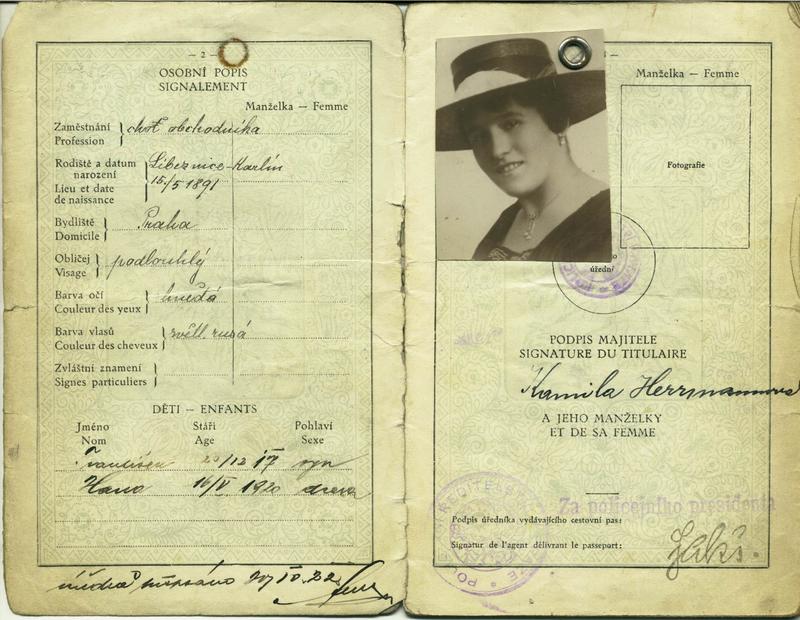 — 2 —
OSOBNÍ POPIS
SIGNALEMENT
Manželka — Femme
Zaměstnání
Profession
choť obchodníka
Rodiště a datum
narození
Lieu et date
de naissance
Líbeznice-Karlín
15/5 1891
Bydliště
Domicile
Praha
Obličej
Visage
podlouhlý
Barva očí
Couleur des yeux
hnědá
Barva vlasů
Couleur des cheveux
světl. rusá
Zvláštní znamení
Signes particuliers
DĚTI — ENFANTS
Jméno Stáří Pohlaví
Nom Age Sexe
František 20/12 17 syn
Hana 16/V. 1920 dcera
Manželka — Femme
Fotografie
úřední
PODPIS MAJITELE
SIGNATURE DU TITULAIRE
Kamila Herrmannová
A JEHO MANŽELKY
ET DE SA FEMME
Za policejního presidenta
Podpis úředníka vydávajícího cestovní pas:
Signatur de l'agent délivrant le passeport: